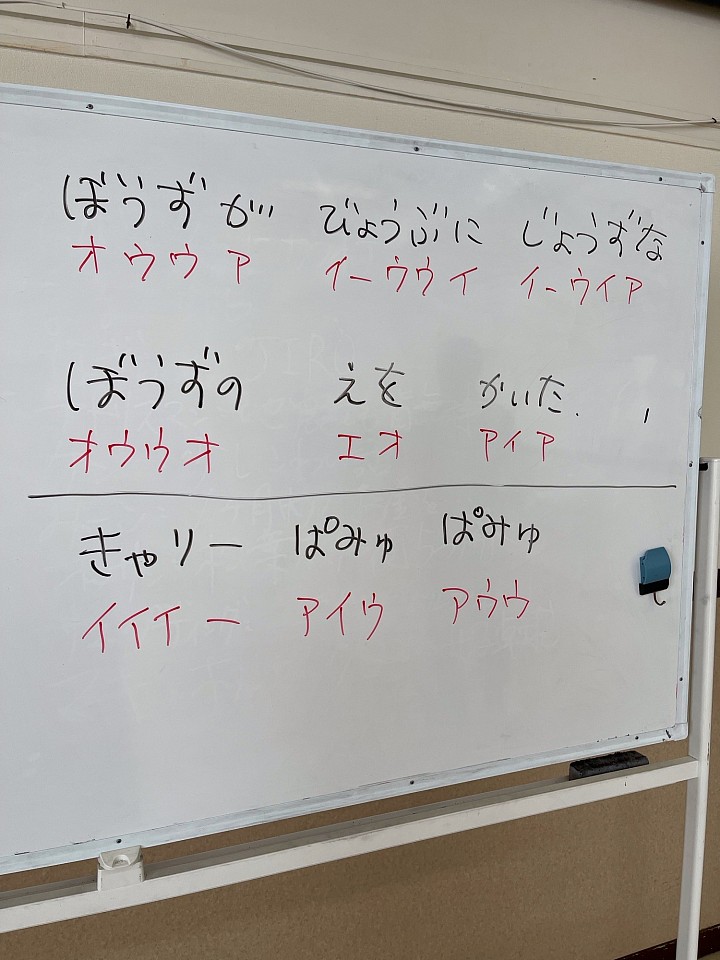 ぼうずが びょうぶに じょうずな
オウウア イーウウイ イーウイア
ぼうずの えを かいた.
オウウオ エオ アイア
きゃりー ぱみゅ ぱみゅ
イイイー アイウ アウウ